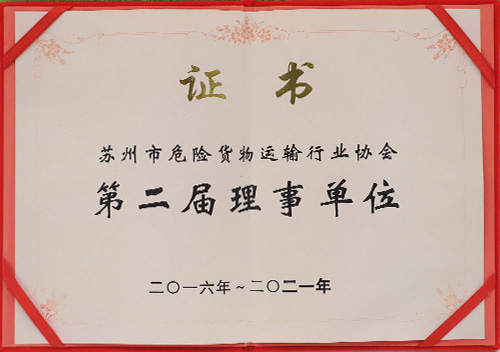 证书
苏州市危险货物运输行业协会
第二届理事单位
二〇一六年~二〇二一年